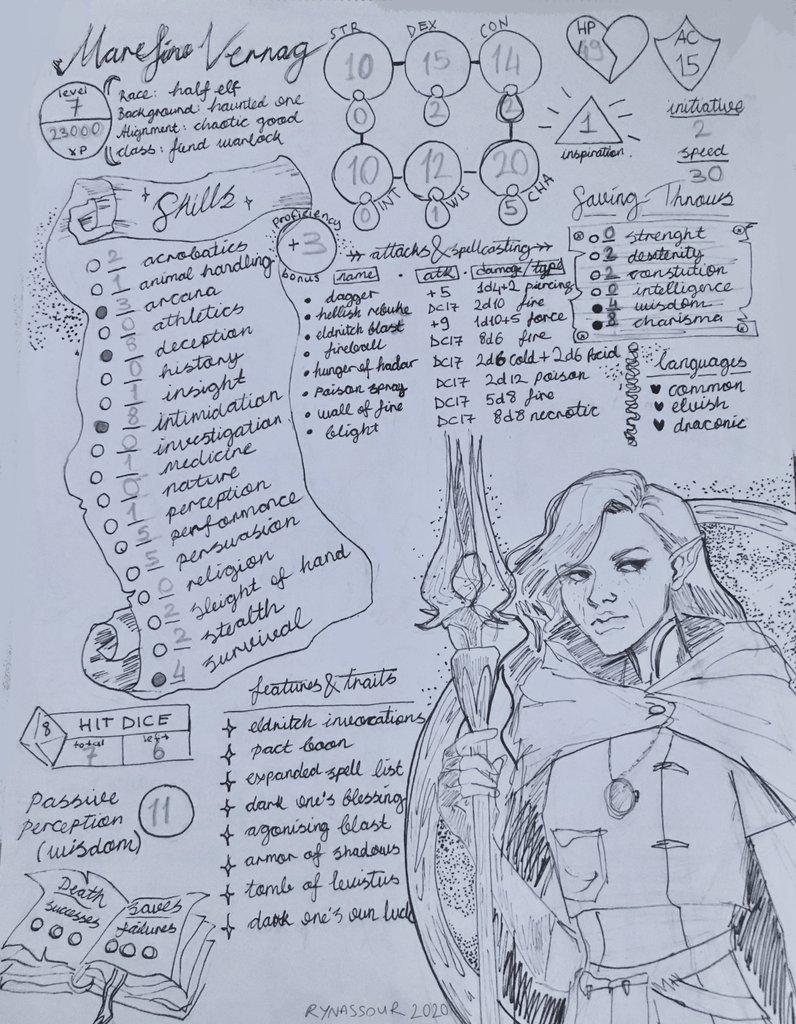 Marefine Vernag
level
7
23000
XP
Race: half elf
Background: haunted one
Alignment: chaotic good
class: fiend warlock
STR
10
0
DEX
15
2
CON
14
2
10
INT
0
12
WIS
1
20
CHA
5
HP
49
AC
15
1
inspiration.
initiative
2
speed
30
Skills
2 acrobatics
1 animal handling
3 arcana
0 athletics
8 deception
0 history
1 insight
8 intimidation
0 investigation
1 medicine
0 nature
1 perception
5 performance
5 persuasion
0 religion
2 sleight of hand
2 stealth
4 survival
proficiency
+3
bonus
attacks & spellcasting
name · atk · damage/type
dagger +5 1d4+2 piercing
hellish rebuke DC17 2d10 fire
eldritch blast +9 1d10+5 force
fireball DC17 8d6 fire
hunger of hadar DC17 2d6 cold + 2d6 acid
poison spray DC17 2d12 poison
wall of fire DC17 5d8 fire
blight DC17 8d8 necrotic
Saving Throws
0 strenght
2 dexterity
2 constution
0 intelligence
4 wisdom
8 charisma
languages
common
elvish
draconic
features & traits
eldritch invocations
pact boon
expanded spell list
dark one's blessing
agonising blast
armor of shadows
tomb of levistus
dark one's own luck
8
HIT DICE
total
7
left
6
Passive
perception
(wisdom)
11
Death
successes
saves
failures
RYNASSOUR 2020